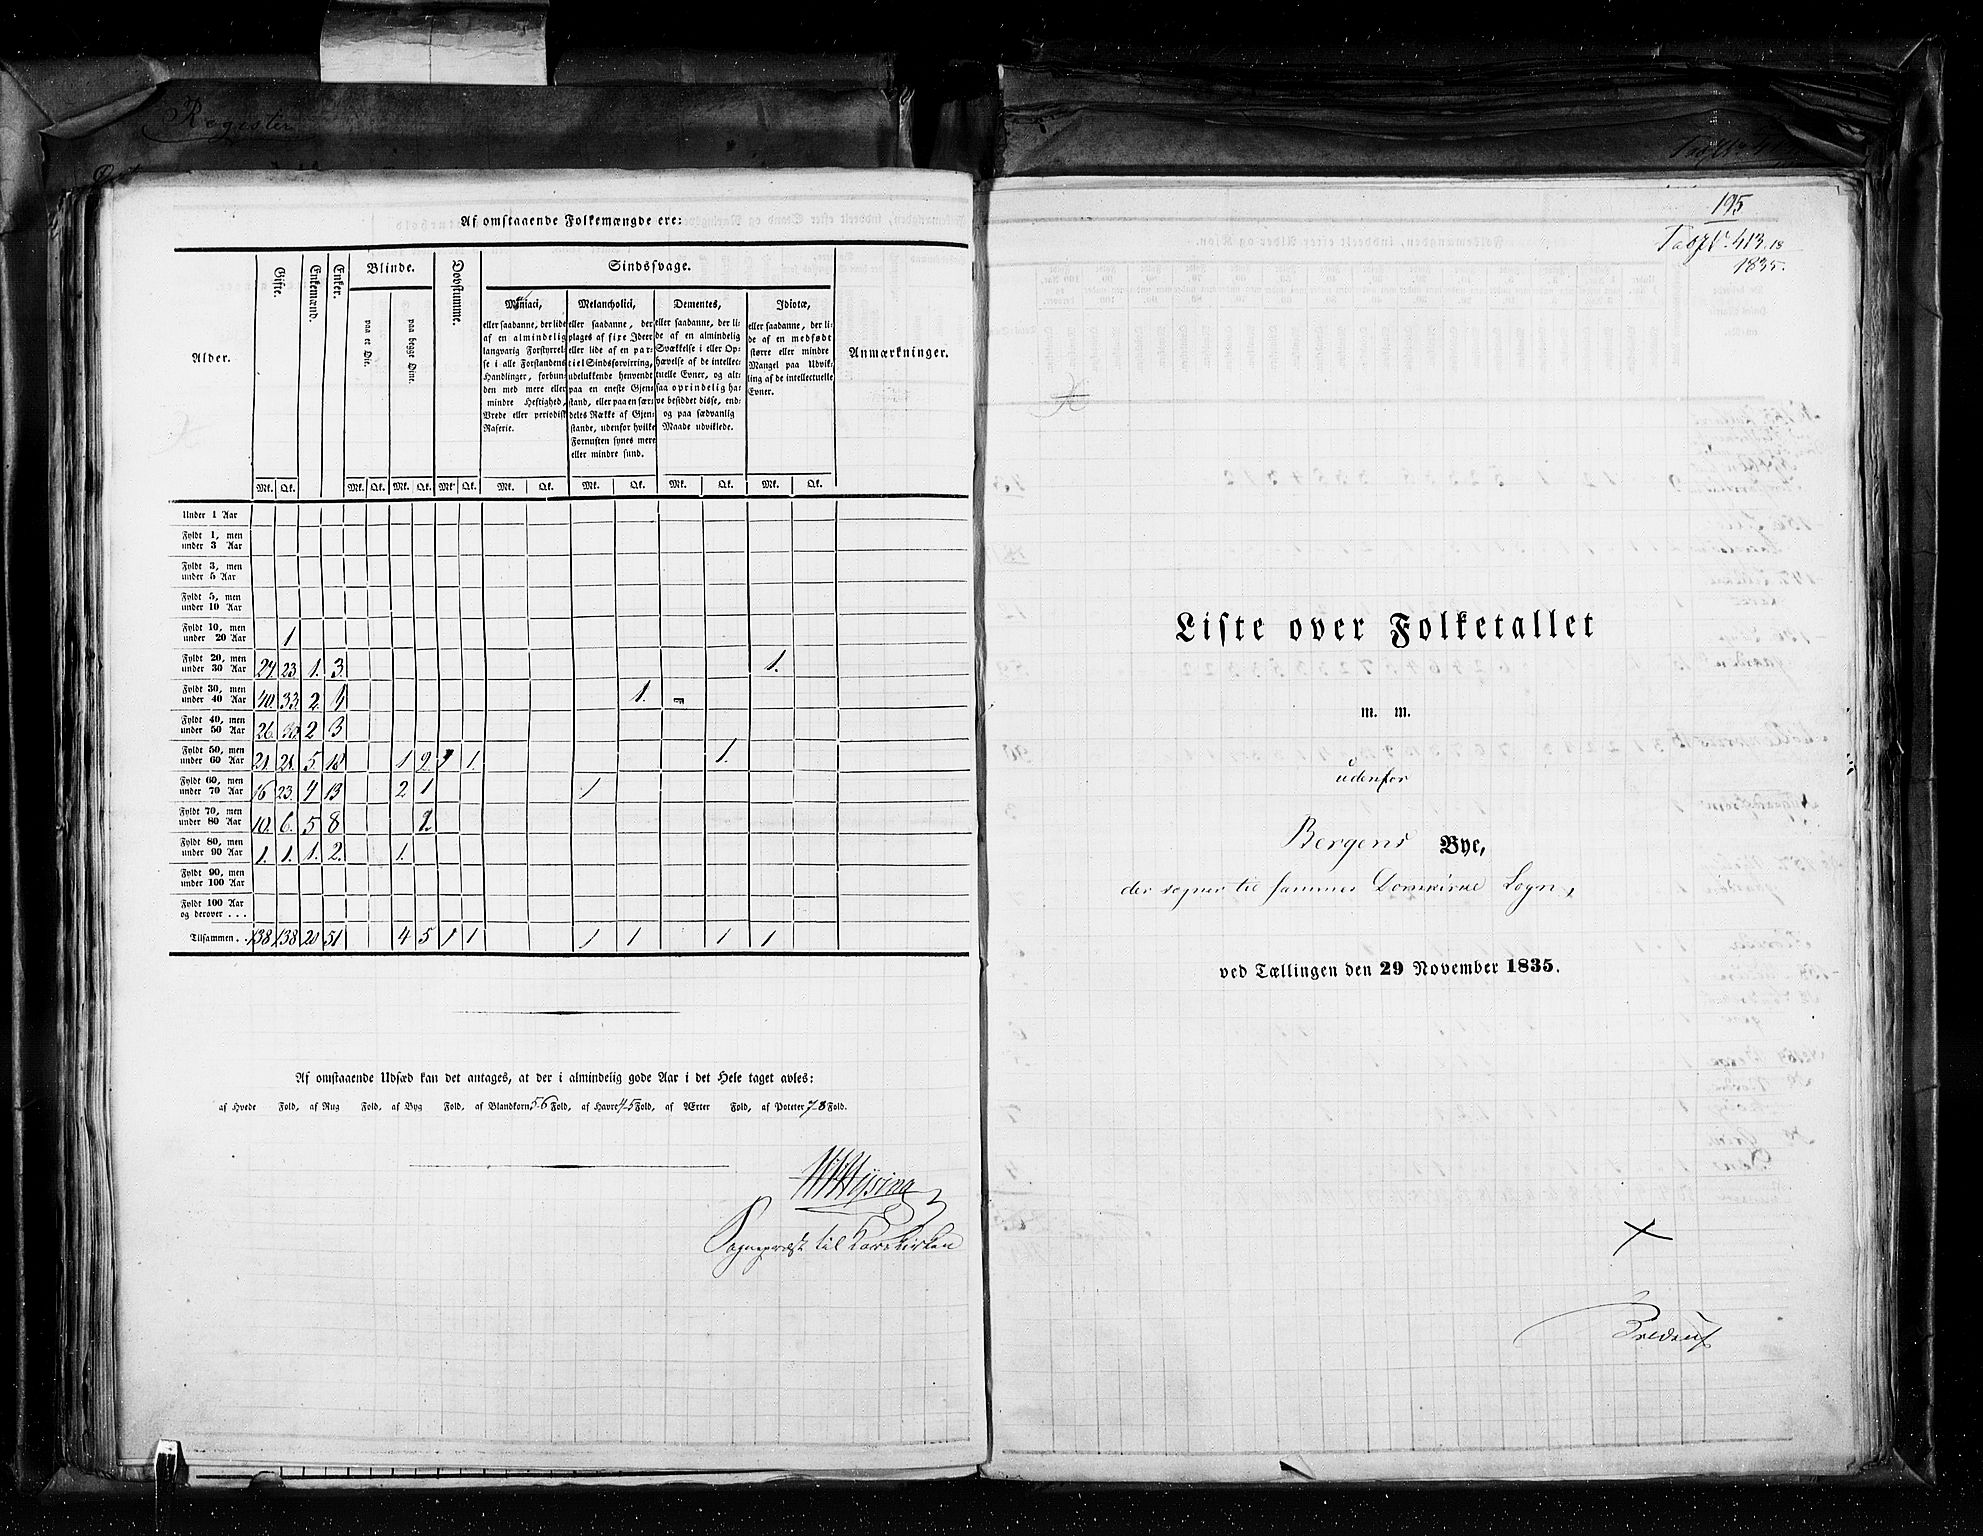 Register
Af omstaaende Folkemængde ere:
Alder.
Gifte.
Enkemænd.
Enker.
Blinde.
paa et Øie.
paa begge Øine.
Døvstumme.
Sindssvage.
Maniaci,
eller saadanne, der lide
af en almindelig
langvarig Forstyrrel-
se i alle Forstandens
Handlinger, forbun-
den med mere eller
mindre Heftighed,
Vrede eller periodisk
Raserie.
Melancholici,
eller saadanne, der
plages af fixe Ideer
eller lide af en par-
tiel Sindsforvirring,
udelukkende henvendt
paa en eneste Gjen-
stand, eller paa en sær-
deles Række af Gjen-
stande, udenfor hvilke
Fornuften synes mere
eller mindre sund.
Dementes,
eller saadanne, der li-
de af en almindelig
Svækkelse i eller Op-
hævelse af de intellec-
tuelle Evner, og alt-
saa oprindelig ha-
ve besiddet disse, end-
og paa sædvanlig
Maade udviklede.
Idiotæ,
eller saadanne, der li-
de af en medfødt
større eller mindre
Mangel paa Udvik-
ling af de intellectuelle
Evner.
Anmærkninger.
Mk. Qk. Mk. Qk. Mk. Qk. Mk. Qk. Mk. Qk. Mk. Qk. Mk. Qk. Mk. Qk.
Under 1 Aar
Fyldt 1, men
under 3 Aar
Fyldt 3, men
under 5 Aar
Fyldt 5, men
under 10 Aar
Fyldt 10, men
under 20 Aar 1
Fyldt 20, men
under 30 Aar 24. 23 1. 3. 1.
Fyldt 30, men
under 40 Aar 40. 33. 2. 4 1.
Fyldt 40, men
under 50 Aar 26. 30. 2 3
Fyldt 50, men
under 60 Aar 21. 21. 5 18 1 1. 1.
Fyldt 60, men
under 70 Aar 16 23. 4 13 2 1 1
Fyldt 70, men
under 80 Aar 10. 6. 5 8
Fyldt 80, men
under 90 Aar 1. 1. 1. 2. 1.
Fyldt 90, men
under 100 Aar
Fyldt 100 Aar
og derover . . .
Tilsammen. 138 138 20 51 4 5 1 1 1 1 1 1
Af omstaaende Udsæd kan det antages, at der i almindelig gode Aar i det Hele taget avles:
af Hvede Fold, af Rug Fold, af Byg Fold, af Blandkorn 5-6 Fold, af Havre 4-5 Fold, af Ærter Fold, af Poteter 7-8 Fold.
Sognepræst til Korskirken
195
413
1835.
Liste over Folketallet
m. m.
udenfor
Bergens Bye,
der sogner til sammes Domkirke Sogn,
ved Tællingen den 29 November 1835.